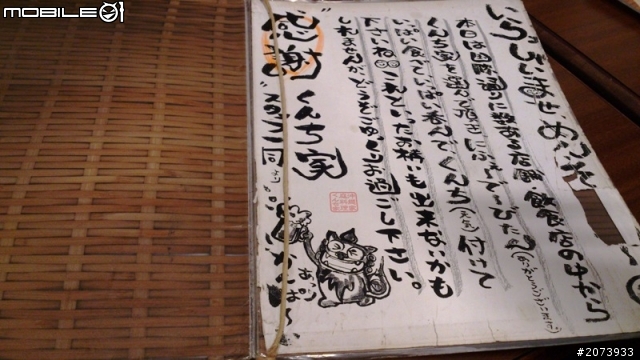 いらっしゃいませ めんそーれ
本日は国際通りに数ある店舗・飲食店の中から
くんち実を選んで頂きにふぇーでーびたん(ありがとうございました)
いっぱい食べていっぱい呑んでくんち(スタミナ)付けて
下さいね これといったお構いも出来ないかも
しれませんが、どうぞごゆっくりお過ごし下さい。
感謝 くんち実
スタッフ一同より
MOBILE01
#2073933